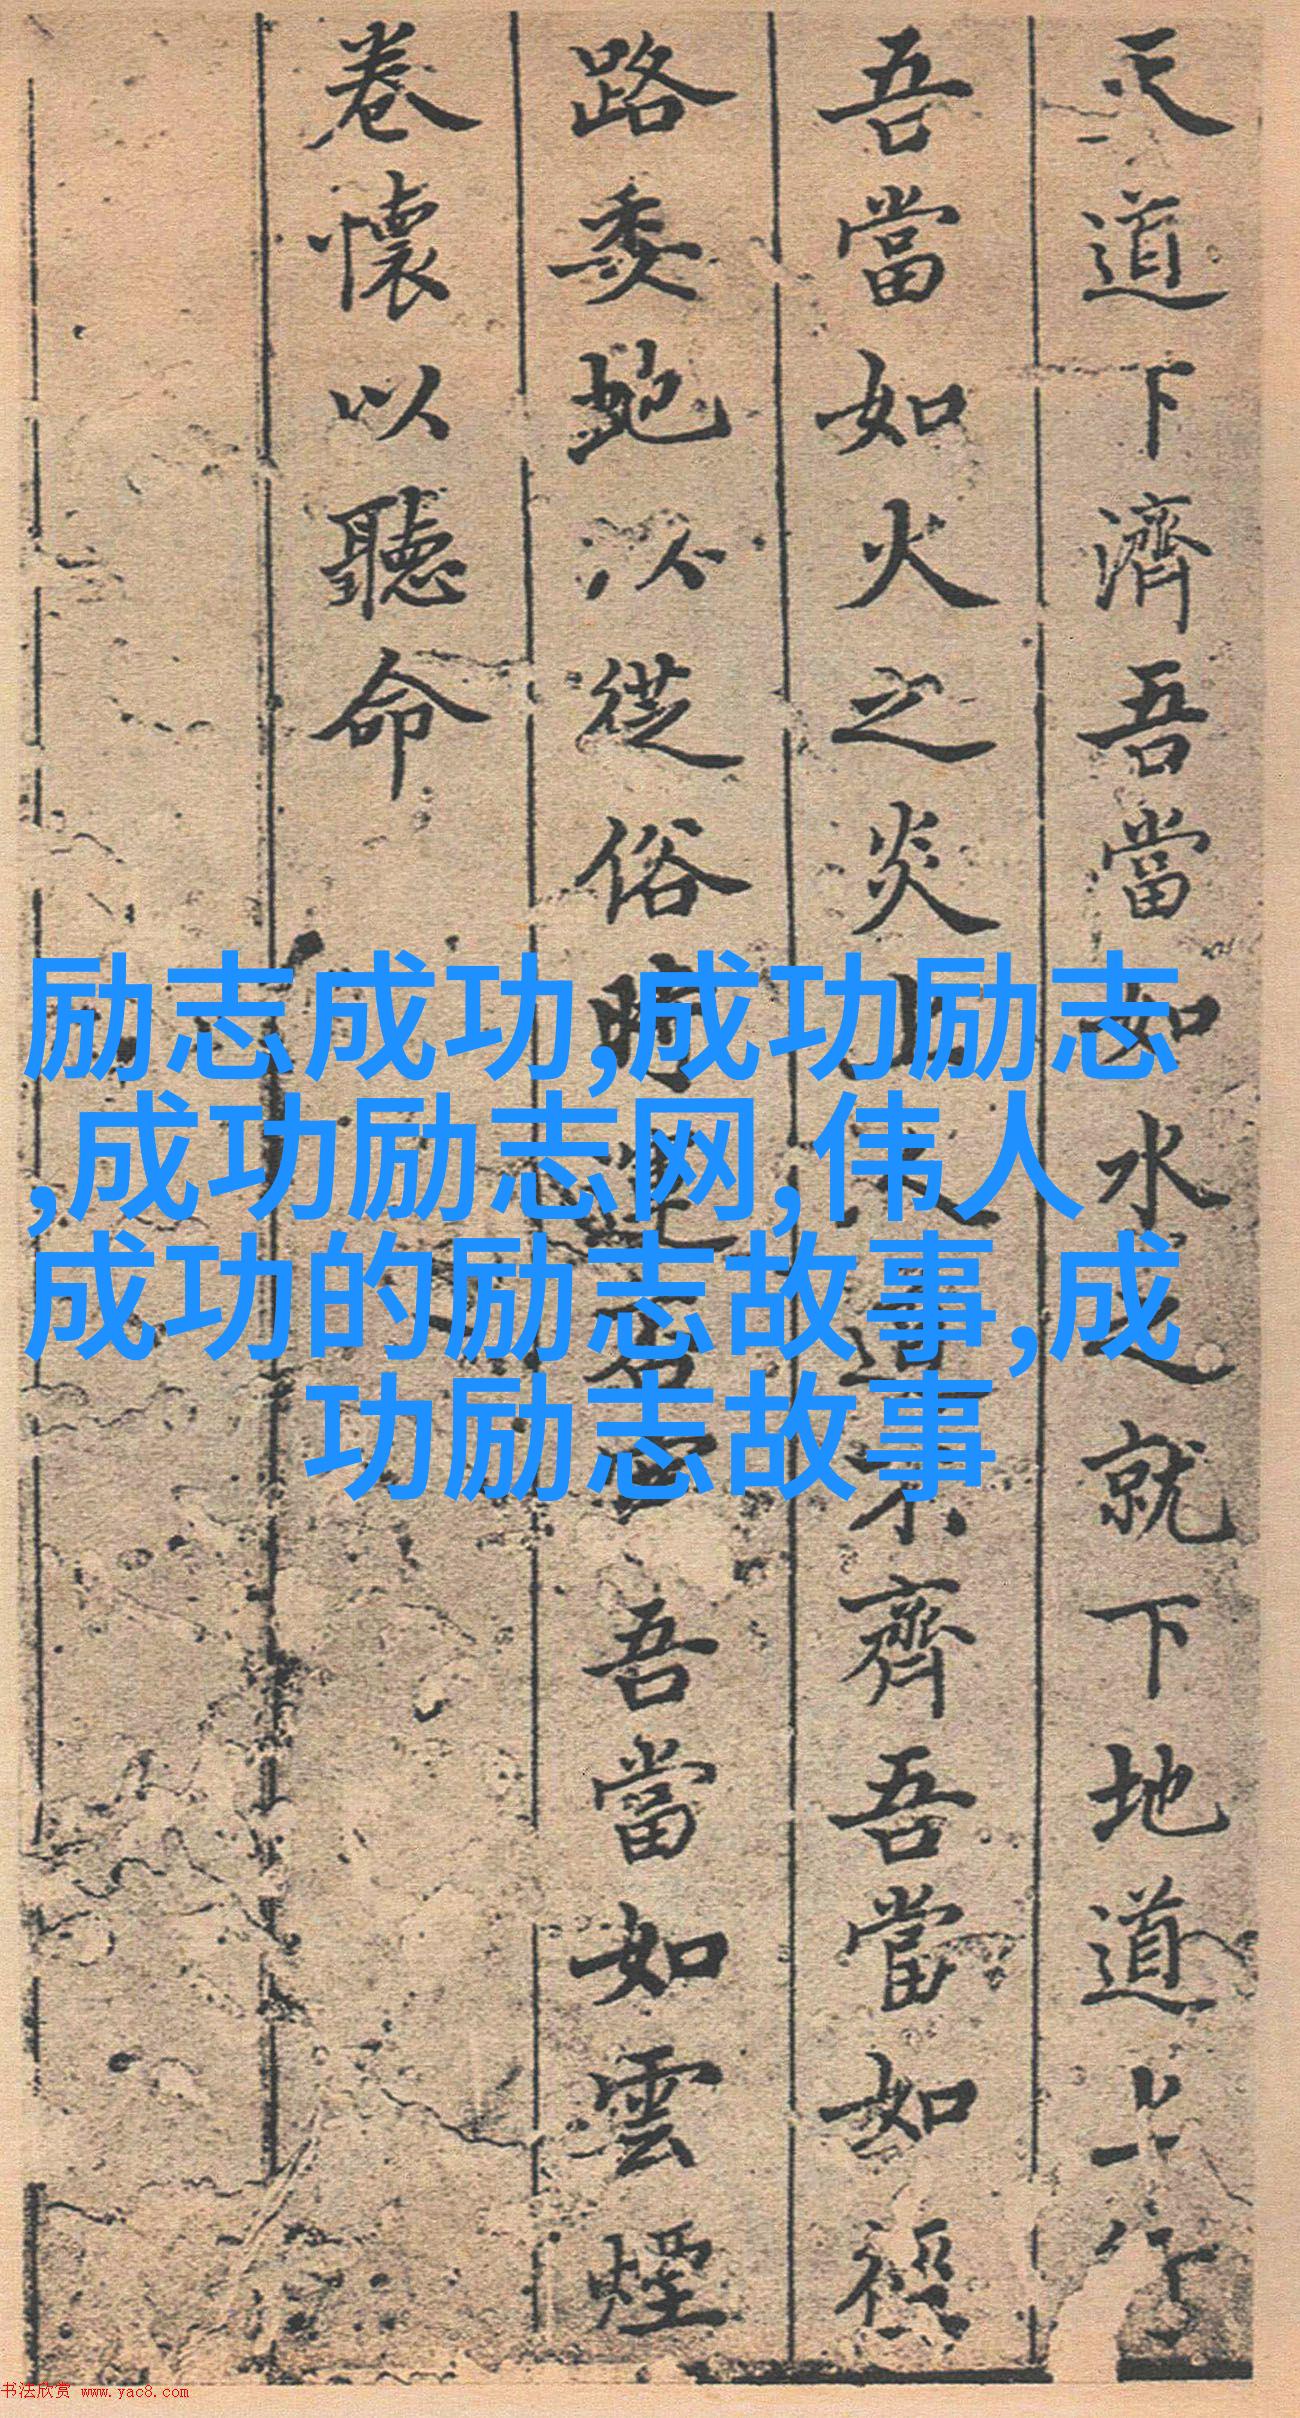 天道下濟吾當如水之就下地道上行
吾當如火之炎上人道不齊吾當如
路委蛇以從俗時達名也吾當如雲煙
卷懷以聽命
励志成功,成功励志
,成功励志网,伟人
成功的励志故事,成
功励志故事
书法欣赏 www.yac8.com